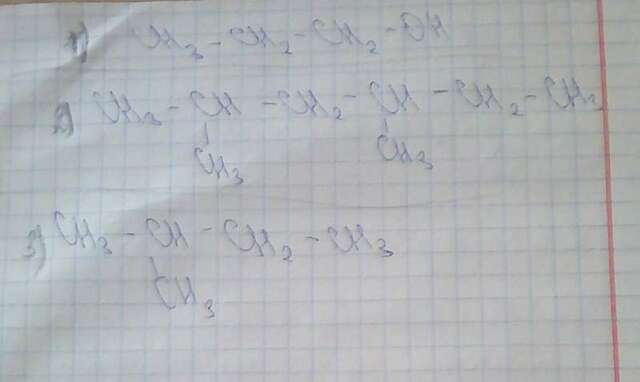 1) CH3 - CH2 - CH2 - OH
2) CH3 - CH - CH2 - CH - CH2 - CH2
CH3 CH3
3) CH3 - CH - CH2 - CH3
CH3